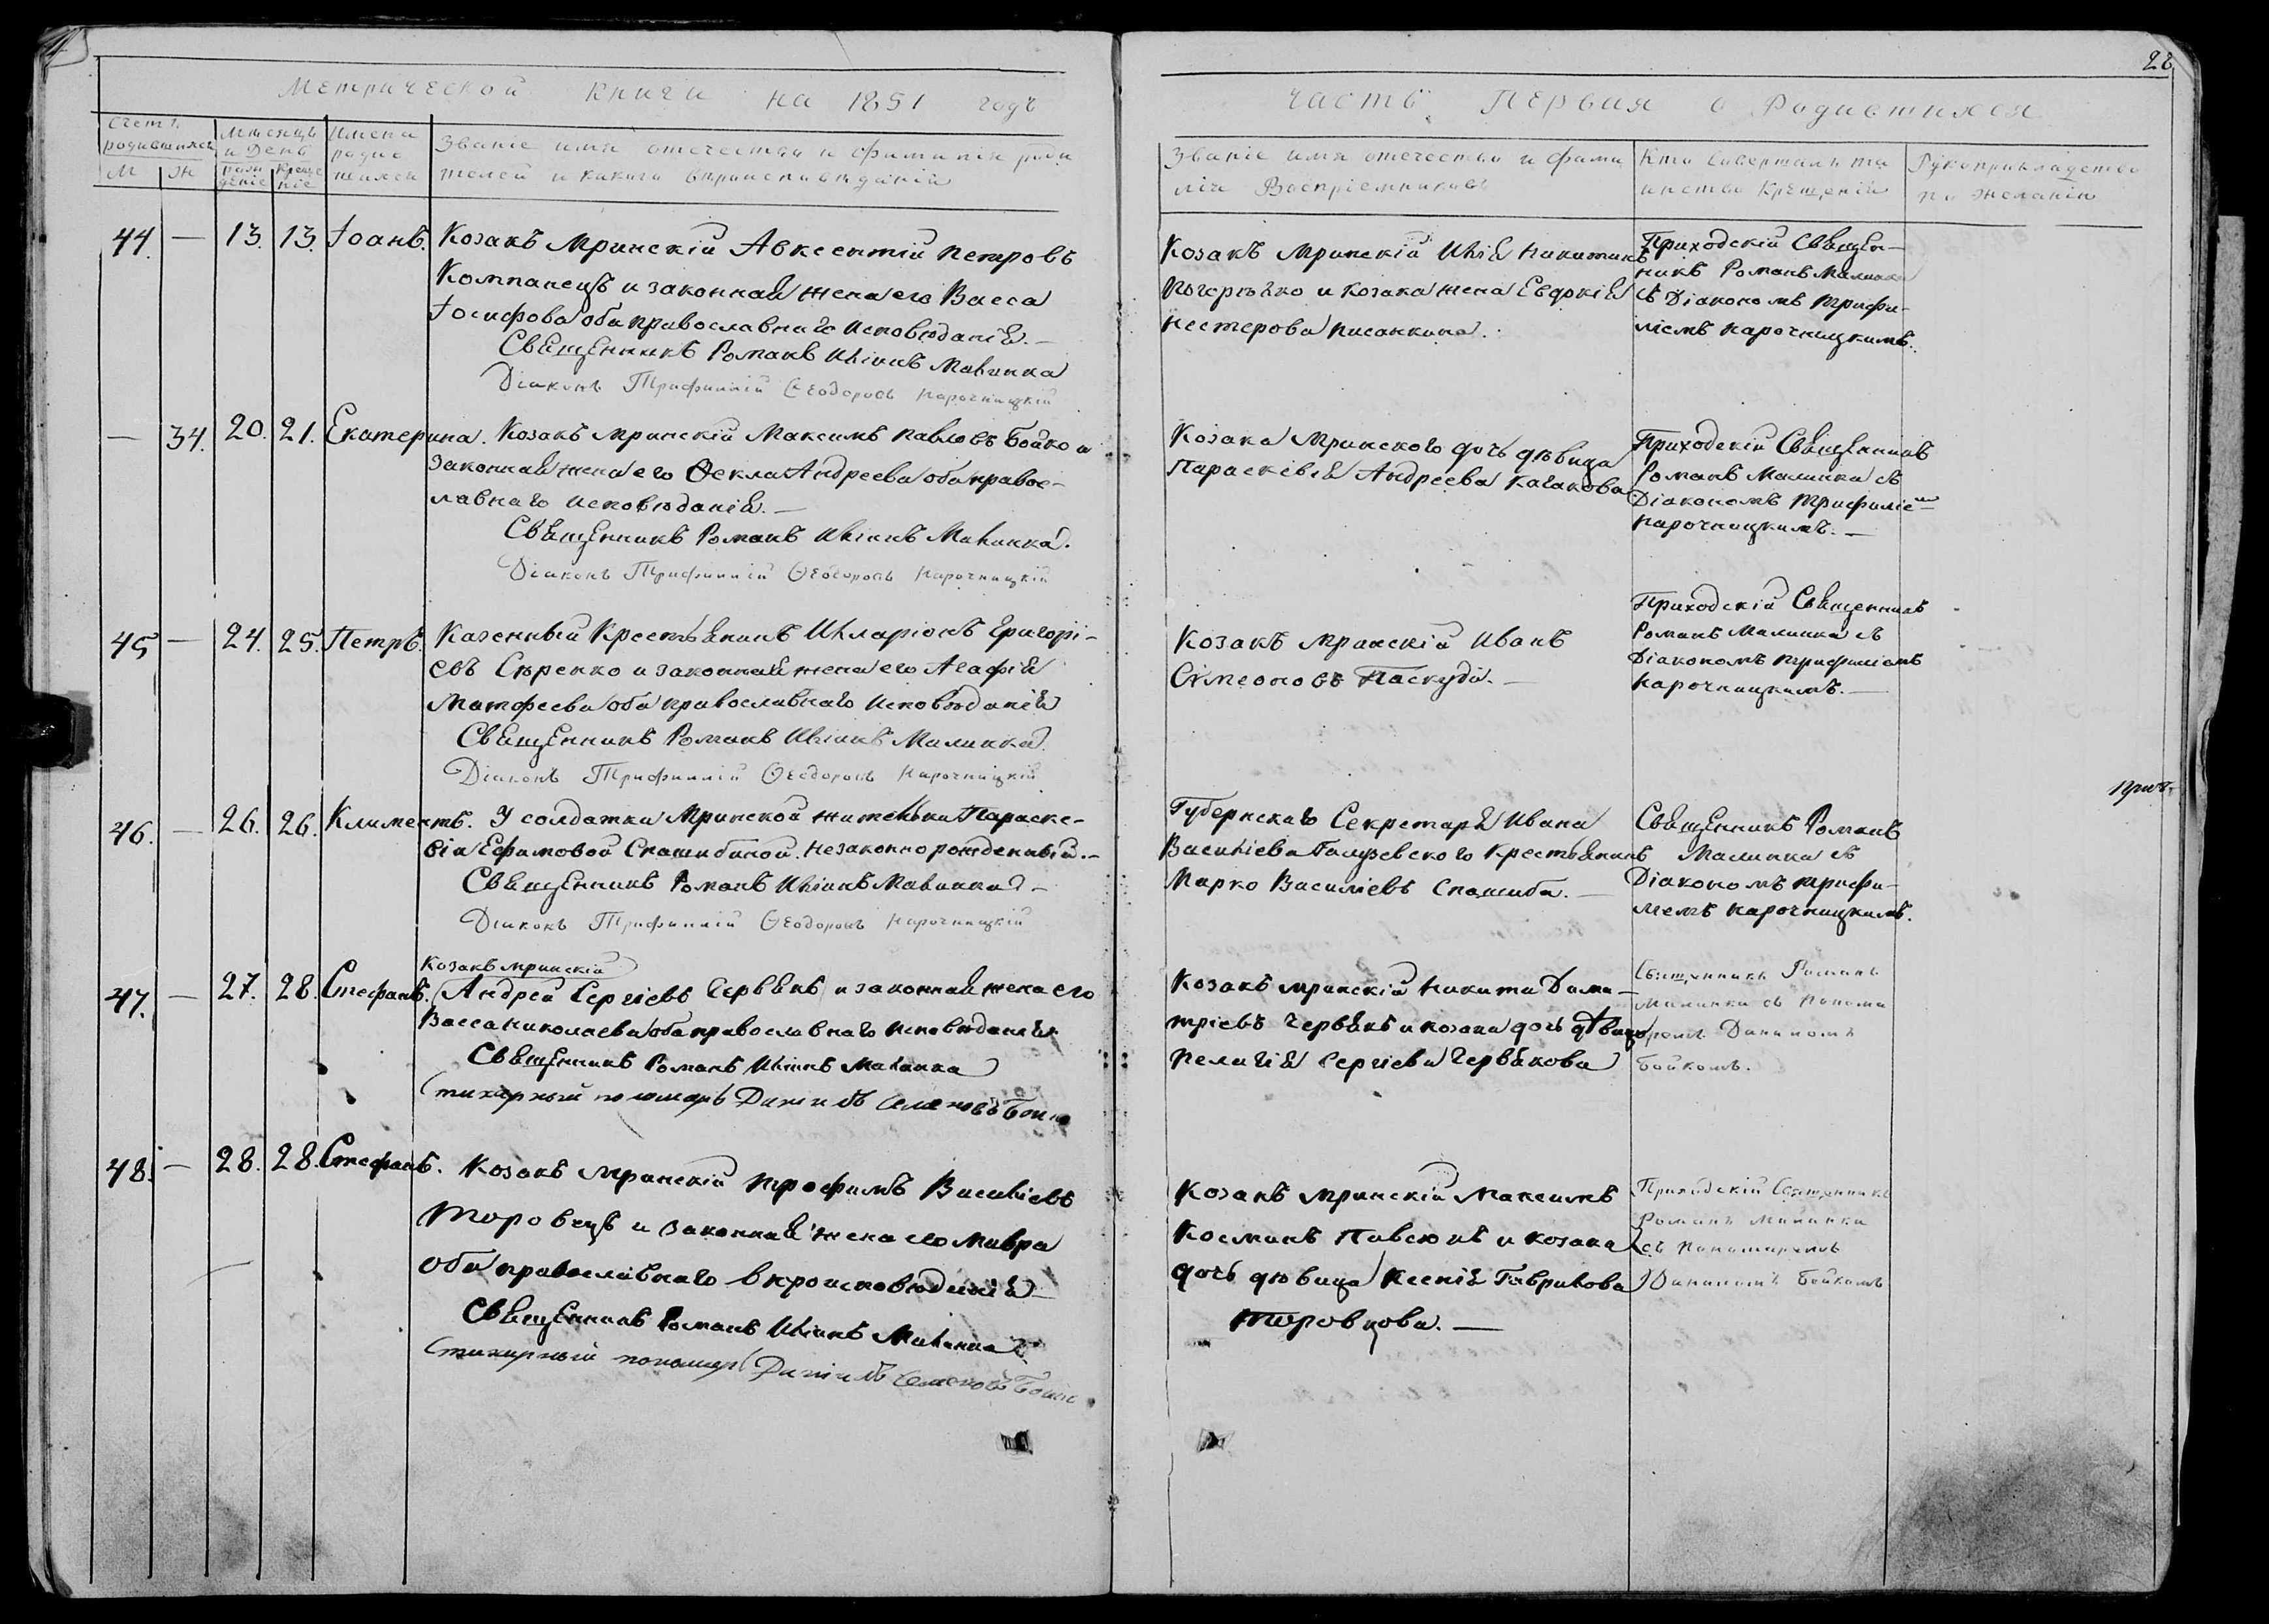 28
Метрической книги на 1851 годъ
Часть Первая о Родившихся
Счетъ родившихся
М
Ж
Мѣсяцъ и День
рожденіе
Крещеніе
Имена
родив
шихся
Званіе имя отечество и фамилія роди
телей и какого вѣроисповѣданія
Званіе имя отечество и фами
лія Воспріемниковъ
Кто совершалъ та
инство Крещенія
Рукоприкладство
по желанію
44. — 13. 13. Іоаннъ.
Козакъ Мринскій Авксентій Петровъ
Компанецъ и законная жена его Васса
Іосифова оба православнаго исповѣданія. —
Священникъ Романъ Иліинъ Малинка
Діаконъ Трифиллій Ѳеодоровъ Нарочницкій
Козакъ Мринскій Илія Никитинъ
Погорѣлко и козака жена Евдокія
Нестерова Писанкина.
Приходскій Священ-
никъ Романъ Малинка
съ Діакономъ Трифи-
ліемъ Нарочницкимъ.
— 34. 20. 21. Екатерина.
Козакъ Мринскій Максимъ Павловъ Бойко и
законная жена его Ѳекла Андреева оба правос-
лавнаго исповѣданія. —
Священникъ Романъ Иліинъ Малинка.
Діаконъ Трифиллій Ѳеодоровъ Нарочницкій
Козака Мринского дочь дѣвица
Параскевія Андреева
Приходскій Священникъ
Романъ Малинка съ
Діакономъ Трифиліем
Нарочницкимъ. —
45 — 24. 25. Петръ.
Казенный Крестьянинъ Иларіонъ Григорі-
евъ Сѣренко и законная жена его Агафія
Матфеева оба православнаго исповѣданія
Священникъ Романъ Иліинъ Малинка
Діаконъ Трифиллій Ѳеодоровъ Нарочницкій
Козакъ Мринскій Иванъ
Симеоновъ Паскуда. —
Приходскій Священникъ
Романъ Малинка съ
Діакономъ Трифиліемъ
Нарочницкимъ. —
46. — 26. 26. Климентъ.
У солдатки Мринской жительки Параске-
віи Ефимовой Спашибиной. Незаконнорожденный. —
Священникъ Романъ Иліинъ Малинка —
Діаконъ Трифиллій Ѳеодоровъ Нарочницкій
Губернскаго Секретаря Ивана
Василіева Крестьянинъ
Марко Василіевъ Спашиба. —
Священникъ Романъ
Малинка съ
Діакономъ Трифи-
лиемъ Нарочницкимъ.
47. — 27. 28. Стефанъ.
Козакъ Мринскій
Андрей Сергіевъ Червякъ и законная жена его
Васса Николаева оба православнаго исповѣданія
Священникъ Романъ Иліинъ Малинка
Стихарный пономарь Даніилъ Симеоновъ Бойко
Козакъ Мринскій Никита Дими-
тріевъ Червякъ и козака дочь дѣвица
Пелагія Сергіева Червякова
Священникъ Романъ
Малинка съ Понома
ремъ Даниломъ
Бойкомъ.
48. — 28. 28. Стефанъ.
Козакъ Мринскій Трофимъ Василіевъ
Торовецъ и законная жена его Мавра
оба православнаго вѣроисповѣданія —
Священникъ Романъ Иліинъ Малинка
Стихарный пономарь Даніилъ Симеоновъ Бойко
Козакъ Мринскій Максимъ
Косминъ Павсюкъ и козака
дочь дѣвица Ксенія Гаврилова
Торовцова. —
Приходскій Священникъ
Романъ Малинка
съ Пономаремъ
Даниломъ Бойкомъ